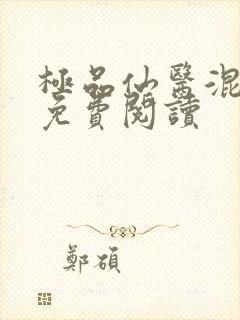 極品仙醫混
免費閱讀
鄭碩